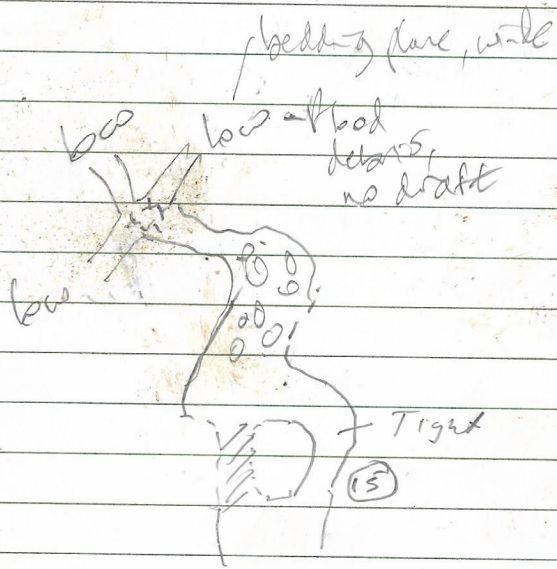 bedding plane, wide
low
low - flood
debris,
no draft
low
Tight
15